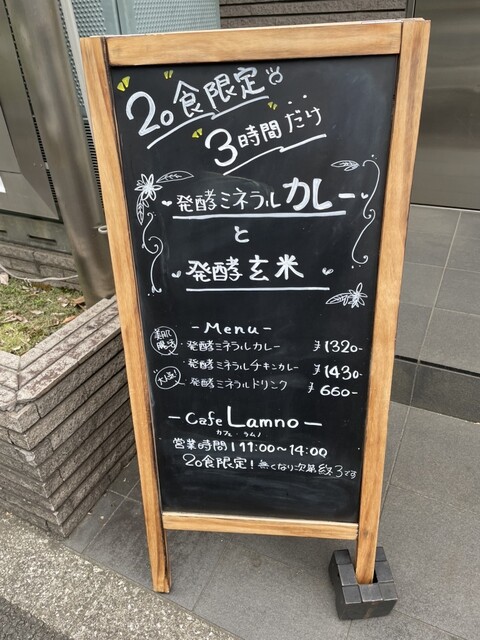 20食限定
3時間だけ
発酵ミネラルカレー
と
発酵玄米
-Menu-
美肌 腸活
・発酵ミネラルカレー ¥1320-
・発酵ミネラルチキンカレー ¥1430-
大人気!
・発酵ミネラルドリンク ¥660-
-Cafe Lamno-
カフェ・ラムノ
営業時間 | 11:00~14:00
20食限定! 無くなり次第終了です